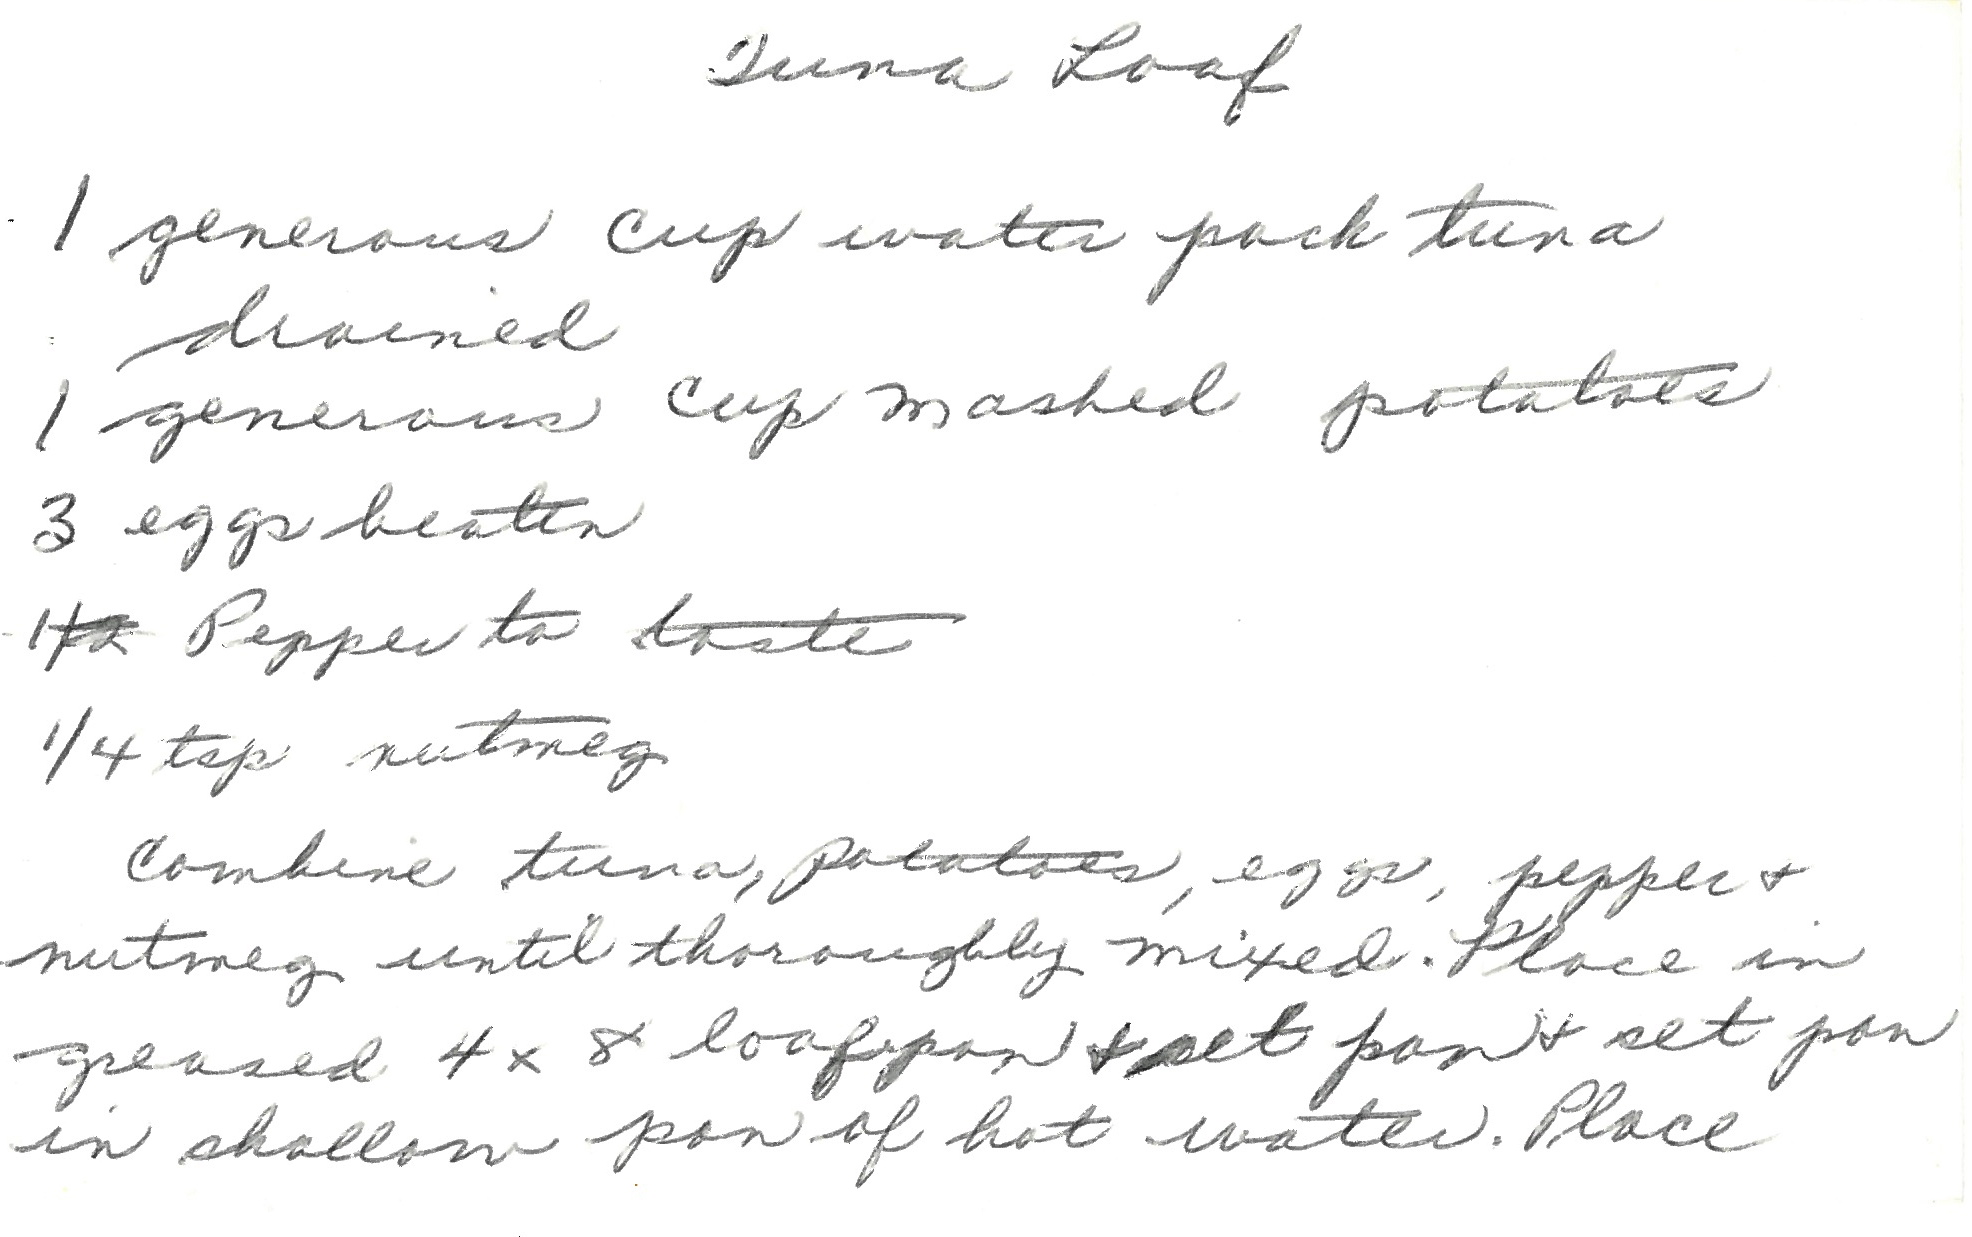 Tuna Loaf
1 generous cup water pack tuna
drained
1 generous cup mashed potatoes
3 eggs beaten
Pepper to taste
1/4 tsp nutmeg
Combine tuna, potatoes, eggs, pepper +
nutmeg until thoroughly mixed. Place in
greased 4 x 8 loaf pan + set pan + set pan
in shallow pan of hot water. Place